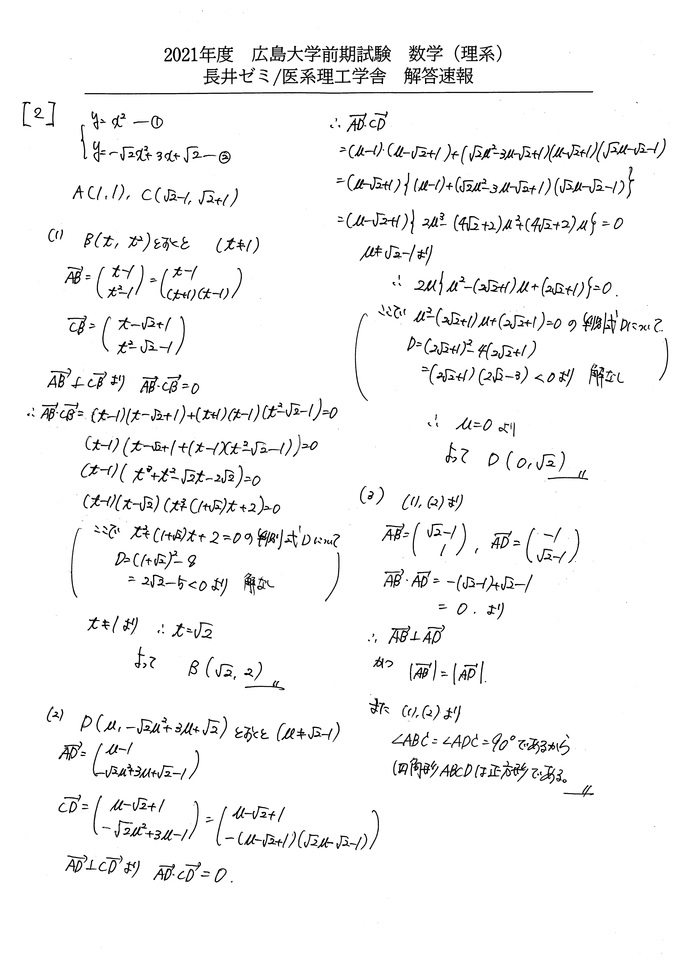 2021年度 広島大学前期試験 数学（理系）
長井ゼミ/医系理工学舎 解答速報
[2]
{ y=x² —①
y=-√2x²+3x+√2 —②
A(1,1), C(√2-1, √2+1)
(1) B(t, t²)とおくと (t≠1)
AB→=(t-1 / t²-1)=(t-1 / (t+1)(t-1))
CB→=(t-√2+1 / t²-√2-1)
AB→⊥CB→より AB→·CB→=0
∴AB→·CB→=(t-1)(t-√2+1)+(t+1)(t-1)(t²-√2-1)=0
(t-1)(t³+t²-√2t-2√2)=0
(t-1)(t-√2)(t²+(1+√2)t+2)=0
ここで t²+(1+√2)t+2=0の判別式Dについて
D=(1+√2)²-8
=2√2-5<0より 解なし
t≠1より ∴t=√2
よって B(√2, 2)
(2) D(u, -√2u²+3u+√2)とおくと(u≠√2-1)
AD→=(u-1 / -√2u²+3u+√2-1)
CD→=(u-√2+1 / -√2u²+3u-1)=(u-√2+1 / -(u-√2+1)(√2u-√2-1))
AD→⊥CD→より AD→·CD→=0.
∴ AD→·CD→
=(u-1)·(u-√2+1)+(√2u²-3u-√2+1)(u-√2+1)(√2u-√2-1)
=(u-√2+1){(u-1)+(√2u²-3u-√2+1)(√2u-√2-1)}
=(u-√2+1){2u³-(4√2+2)u²+(4√2+2)u}=0
u≠√2-1より
∴ 2u{u²-(2√2+1)u+(2√2+1)}=0.
ここで u²-(2√2+1)u+(2√2+1)=0の判別式Dについて
D=(2√2+1)²-4(2√2+1)
=(2√2+1)(2√2-3)<0より 解なし
∴ u=0より
よって D(0,√2)
(3) (1),(2)より
AB→=(√2-1 / 1), AD→=(-1 / √2-1)
AB→·AD→=-(√2-1)+√2-1
=0.より
∴ AB→⊥AD→
かつ |AB→|=|AD→|.
また (1),(2)より
∠ABC=∠ADC=90°であるから
四角形ABCDは正方形である。